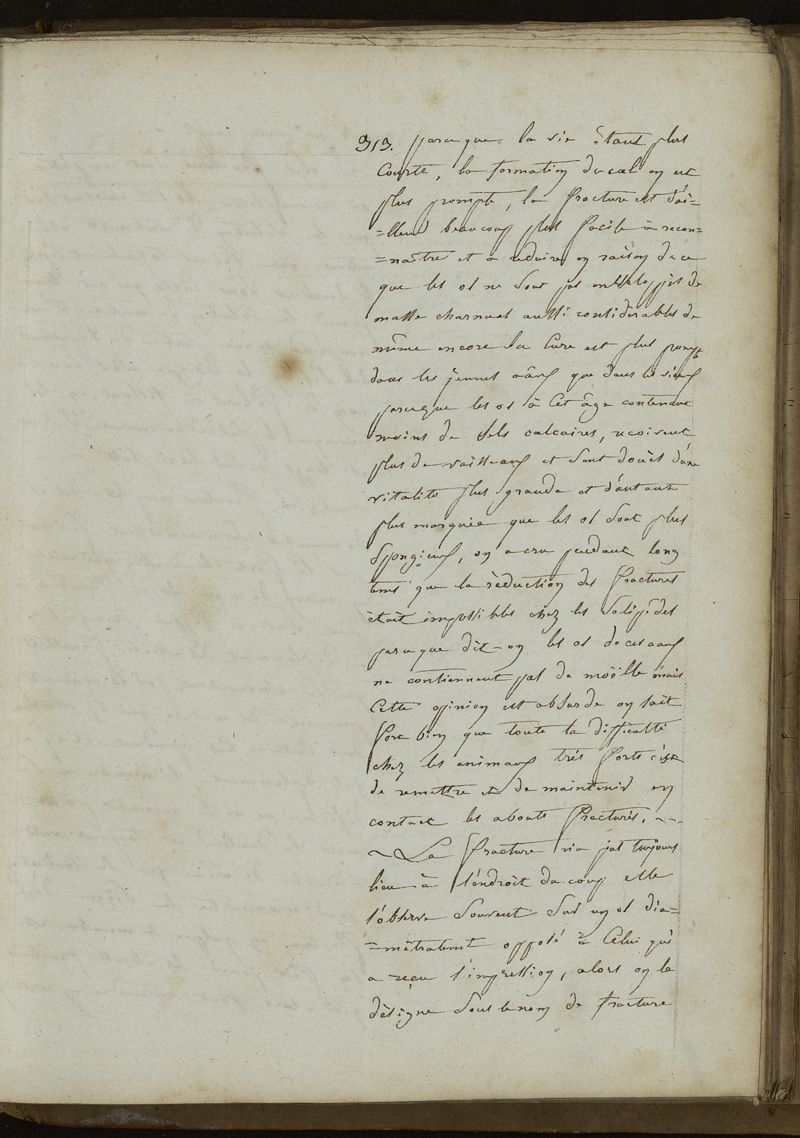 313. parceque la vie étant plus
Courte, la formation du cal en est
plus prompte, la fracture est d'ai=
=lleurs beaucoup plus facile à recon=
=naître et a réduire en raison de ce
que les os ne sont pas enveloppés de
masse charnues aussi considérables de
même encore la Cure est plus prompte
dans les jeunes que dans les vieux
parceque les os à Cet âge contenant
moins de sels calcaires, reçoivent
plus de vaisseaux et sont doués d'une
vittalité plus grande et d'autant
plus marquée que les os sont plus
Spongieux, on a cru pendant long
tems que la réduction des fractures
était impossibles chez les Solipèdes
parceque dit-on les os de ces
ne contiennent pas de moëlle mais
Cette opinion est absurde on sait
fort bien que toute la difficulté
chez les animaux très forts c'est
de remettre et de maintenir en
contact les abouts fracturés.
La fracture n'a pas toujours
lieu à l'endroit du coup elle
s'observe Souvent Sur un os dia=
=métralemt opposé à Celui qui
a reçu l'impression, alors on la
désigne Sous le nom de fracture